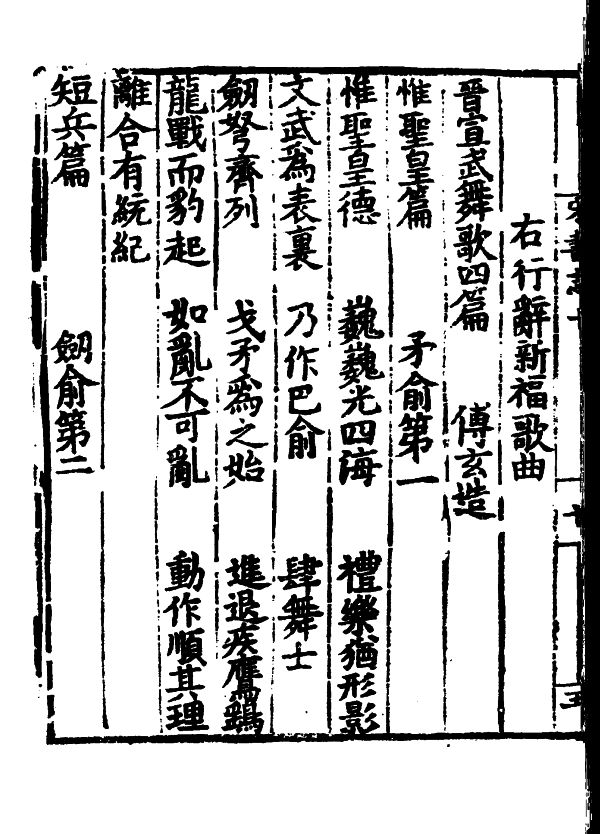 右行辭新福歌曲
晉宣武舞歌四篇 傅玄造
惟聖皇篇 矛俞第一
惟聖皇德 巍巍光四海 禮樂猶形影
文武爲表裏 乃作巴俞 肆舞士
劒弩齊列 戈矛爲之始 進退疾鷹鷂
龍戰而豹起 如亂不可亂 動作順其理
離合有統紀
短兵篇 劒俞第二